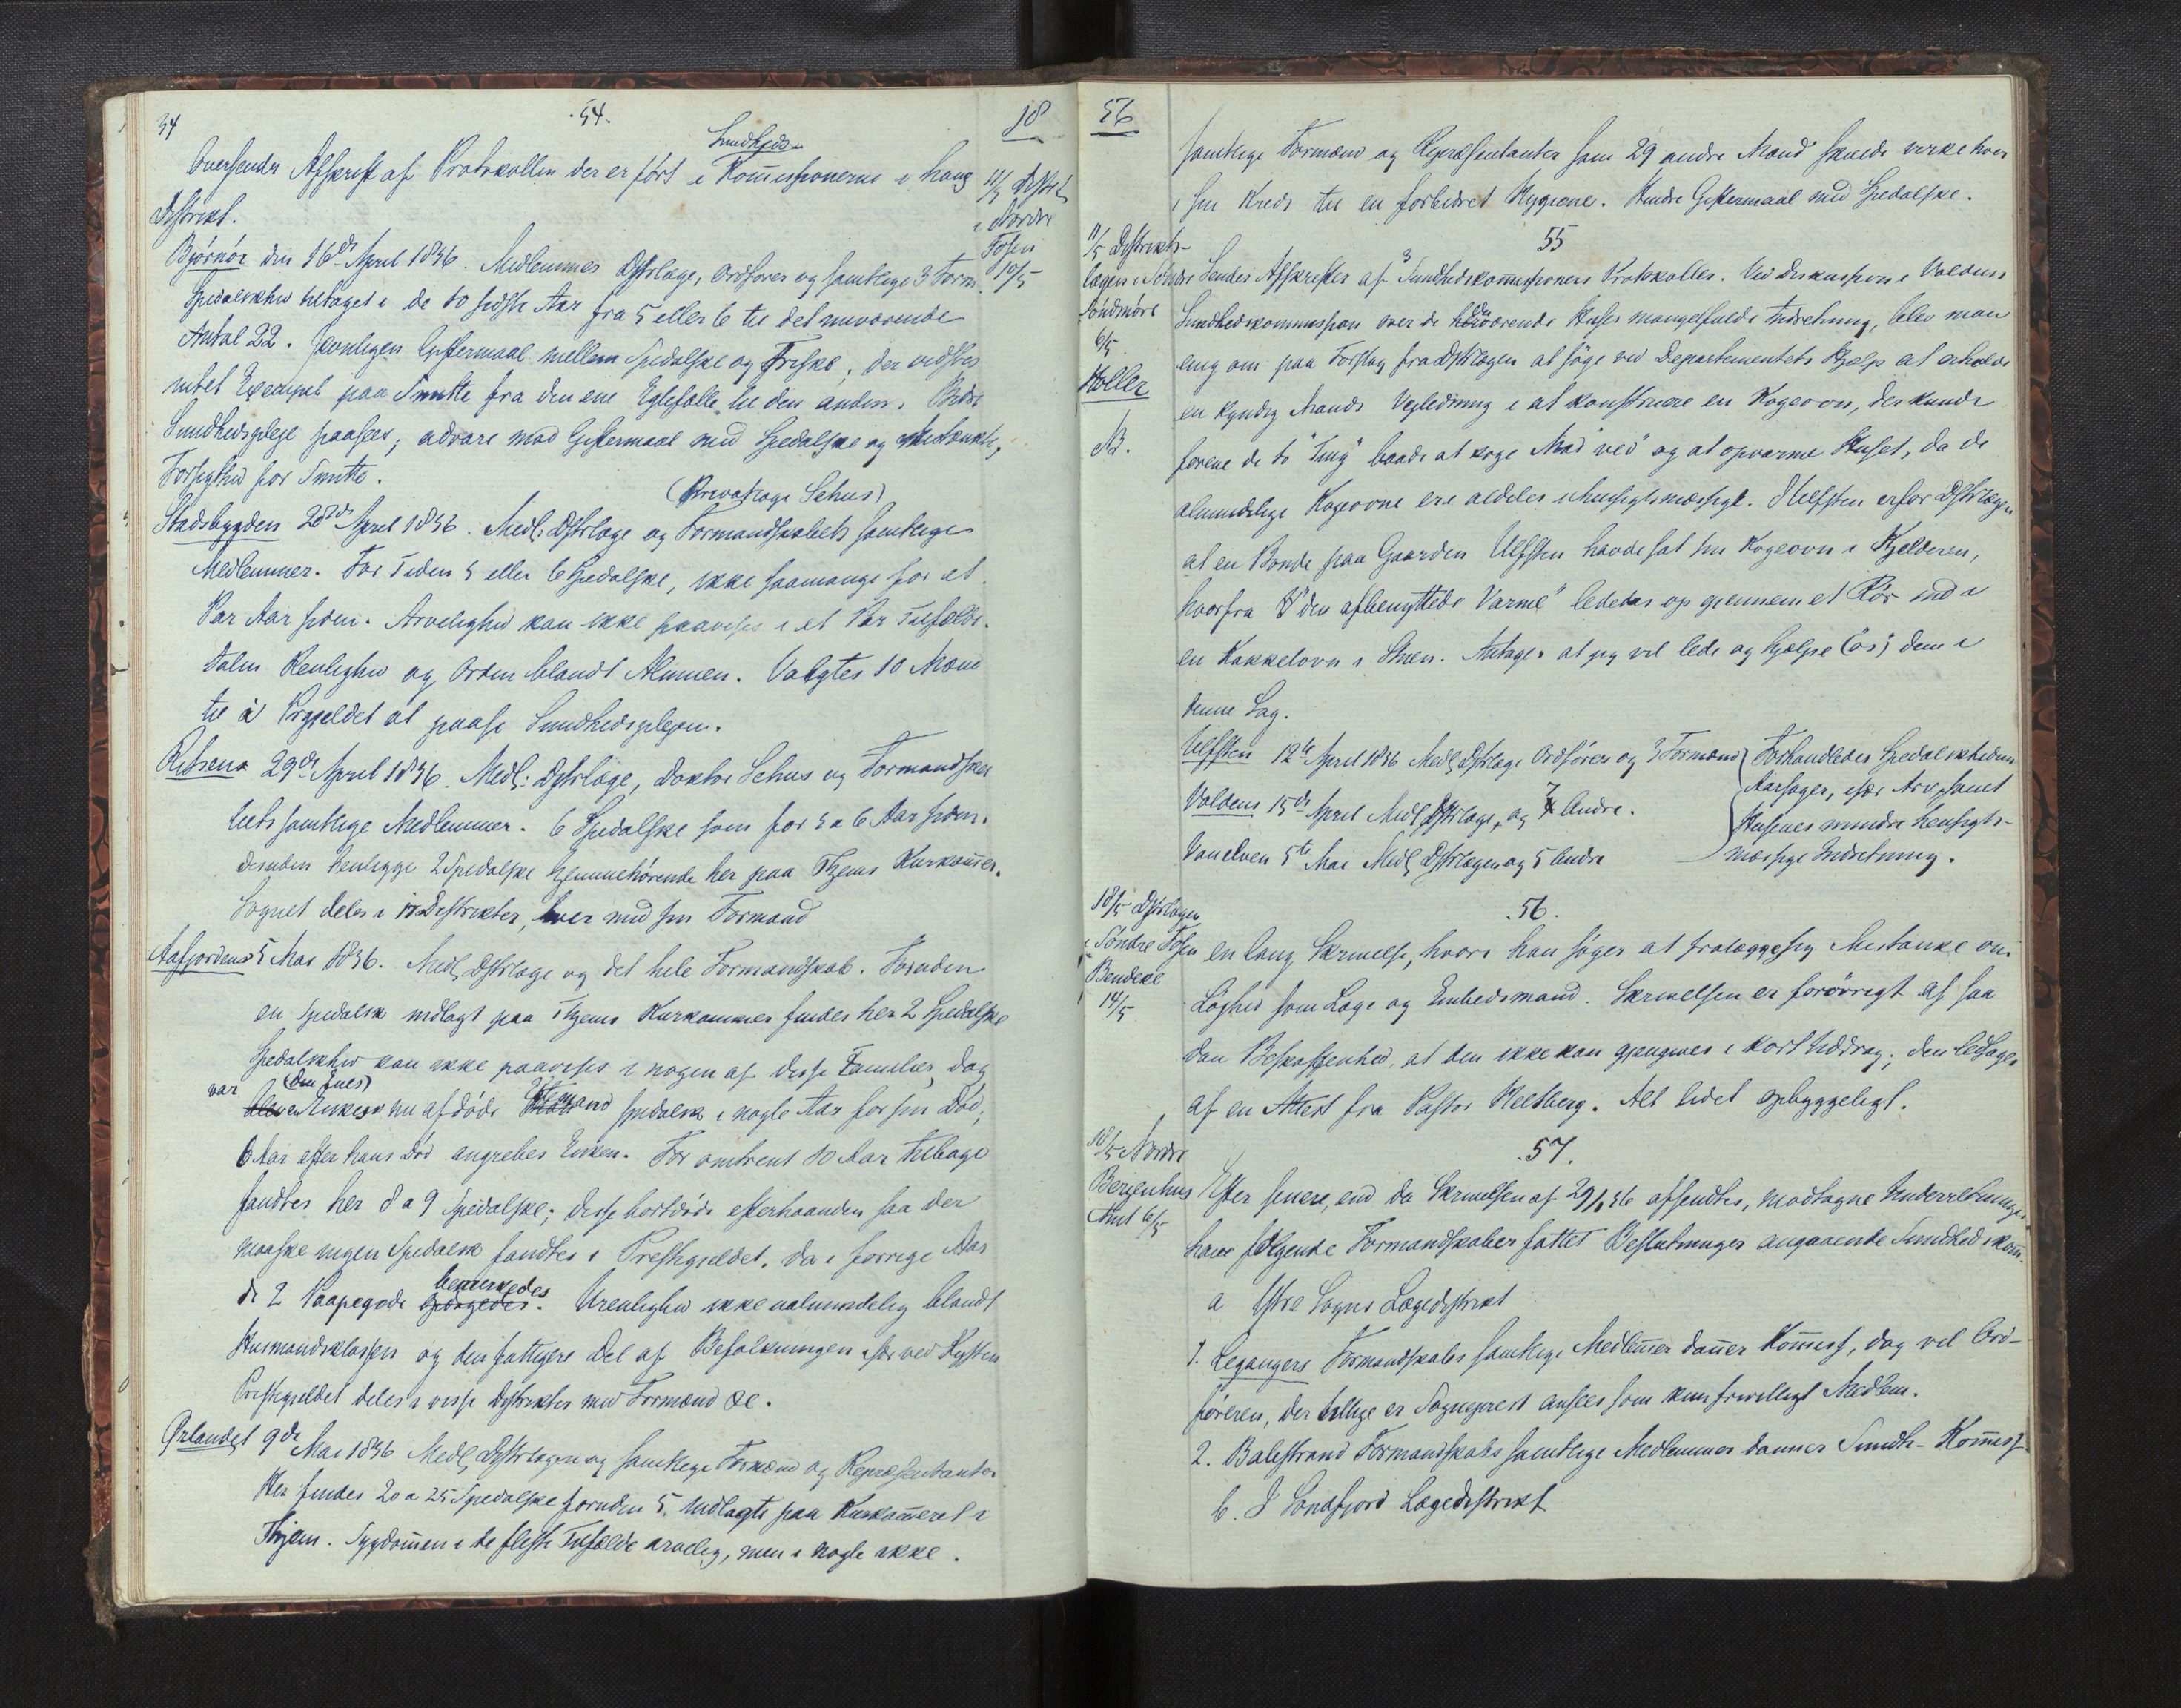 34
.54.
18
Sundheds-
Oversender Afskrift af Protokollen der er ført i Kommissionerne i hans
Distrikt.
11/5 Distrl
i Nordre
Fosen
10/5
Bjørnør den 16de April 1856. Medlemmer Dstrlæge, Ordfører og samtlige 3 Form.
Spedalskhed tiltaget i de 10 sidste Aar fra 5 eller 6 til det nuværende
Antal 22. Jevnligen Giftermaal mellem Spedalske og Friske; der vidstes
intet Exempel paa Smitte fra den ene Egtefælle til den anden. Bedre
Sundhedspleje paasees; advare mod Giftermaal med Spedalske og
Forsigtighed for Smitte.
(Privatlæge Sehus)
Stadsbygden 28de April 1856. Medl: Dstrlæge og Formandskabets samtlige
Medlemmer. For Tiden 5 eller 6 Spedalske, ikke saamange for et
Par Aar siden. Arvelighed kan ikke paavises i et Par Tilfælde.
Renlighed og Orden blandt Almuen. Valgtes 10 Mænd
til i Prgjeldet at paase Sundhedsplejen.
Rissens 29de April 1856. Medl: Dstrlæge, Doktor Sehus og Formandska
bets samtlige Medlemmer. 6 Spedalske som for 5 a 6 Aar siden.
desuden henligge 2 Spedalske hjemmehørende her paa Thjems Kurkammer.
Sognet deles i Distrikter, hver med sin Formand
Aafjordens 5 Mai 1856. Medl Dstrlæge og det hele Formandskab. Foruden
en spedalsk indlagt paa Thjems Kurkammer findes her 2 Spedalske
Spedalskhed kan ikke paavises i nogen af disse Familier, dog
var (den Enes)
Enkes nu afdøde Mand spedalsk i nogle Aar før sin Død;
6 Aar efter hans Død angrebes Enken. For omtrent 10 Aar tilbage
fandtes her 8 a 9 Spedalske; disse bortdøde efterhaanden saa der
maaske ingen Spedalsk fandtes i Prestegjeldet, da i forrige Aar
bemerkedes
de 2 Urenlighed ikke ualmindelig blandt
Husmandsklassen og den fattigere Del af Befolkningen især ved Kysten
Prestegjeldet deles i visse Distrikter med Formænd &c.
Ørlandet 9de Mai 1856 Medl Dstrlægen og samtlige Formænd og Repræsentanter
Her findes 20 a 25 Spedalske foruden 5 indlagte paa Kurkammeret i
Thjem. Sygdommen i de fleste Tilfælde arvelig, men i nogle ikke.
56
samtlige Formænd og Repræsentanter som 29 andre Mænd skulde virke hver
i sin Kreds til en forbedret Hygiene. Hindre Giftermaal med Spedalske.
55
11/5 Distrikts-
lægen i Søndre
Søndmøre
6/5
Holler
NB.
Sender Afskrifter af 3 Sundhedskommissioners Protokoller. Ved Diskussion i Voldens
Sundhedskommission over de herværende Huses mangelfulde Indretning, blev man
enig om paa Forslag fra Dstrlægen at søge ved Departementets Hjælp at erholde
en kyndig Mands Vejledning i at konstruere en Kogeovn, der kunde
forene de to "Ting" baade at koge Mad "ved" og at opvarme Huset, da de
almindelige Kogeovne ere aldeles uhensigtsmæssige. I Ulfsten erfor Dstrlægen
at en Bonde paa Gaarden Ulfsten havde sat sin Kogeovn i Kjelderen,
hvorfra "den afbenyttede Varme" lededes op gjennem et Rør ind i
en Kakkelovn i Stuen. Antager at jeg vil lede og hjælpe (os) dem i
denne Sag.
Ulfsten 12te April 1856 Medl Dstrlæge Ordfører og 3 Formænd
Voldens 15de April Medl Dstrlæge, og 7 Andre.
Vanelven 5te Mai Medl Dstrlægen og 5 Andre
Forhandledes Spedalskhedens
Aarsager, især Arv, samt
Husenes mindre hensigts-
mæssige Indretning.
18/5 Dstrlægen
i Søndre Fosen
Bendeke
14/5
.56.
en lang Skrivelse, hvori han søger at fralægge sig Mistanke om
Løghed som Læge og Embedsmand. Skrivelsen er forøvrigt af saa
dan Beskaffenhed, at den ikke kan gjengives i kort Uddrag; den ledsages
af en Attest fra Pastor Heltberg. Alt lidet opbyggeligt.
18/5 Nordre
Bergenhus
Amt 6/5
.57.
Efter senere, end da Skrivelsen af 29/ 56 afsendtes, modtagne Underretninger
have følgende Formandskaber fattet Beslutninger angaaende Sundhedskom:
a Ytre Sogns Lægedistrikt
1. Leganger Formandskabs samtlige Medlemer danner Kommiss, dog vil Ord-
føreren, der tillige er Sogneprest ansees som kun frivilligt Medlem.
2. Balestrand Formandskabs samtlige Medlemmer danner Sundh-Kommiss
b. I Søndfjord Lægedistrikt